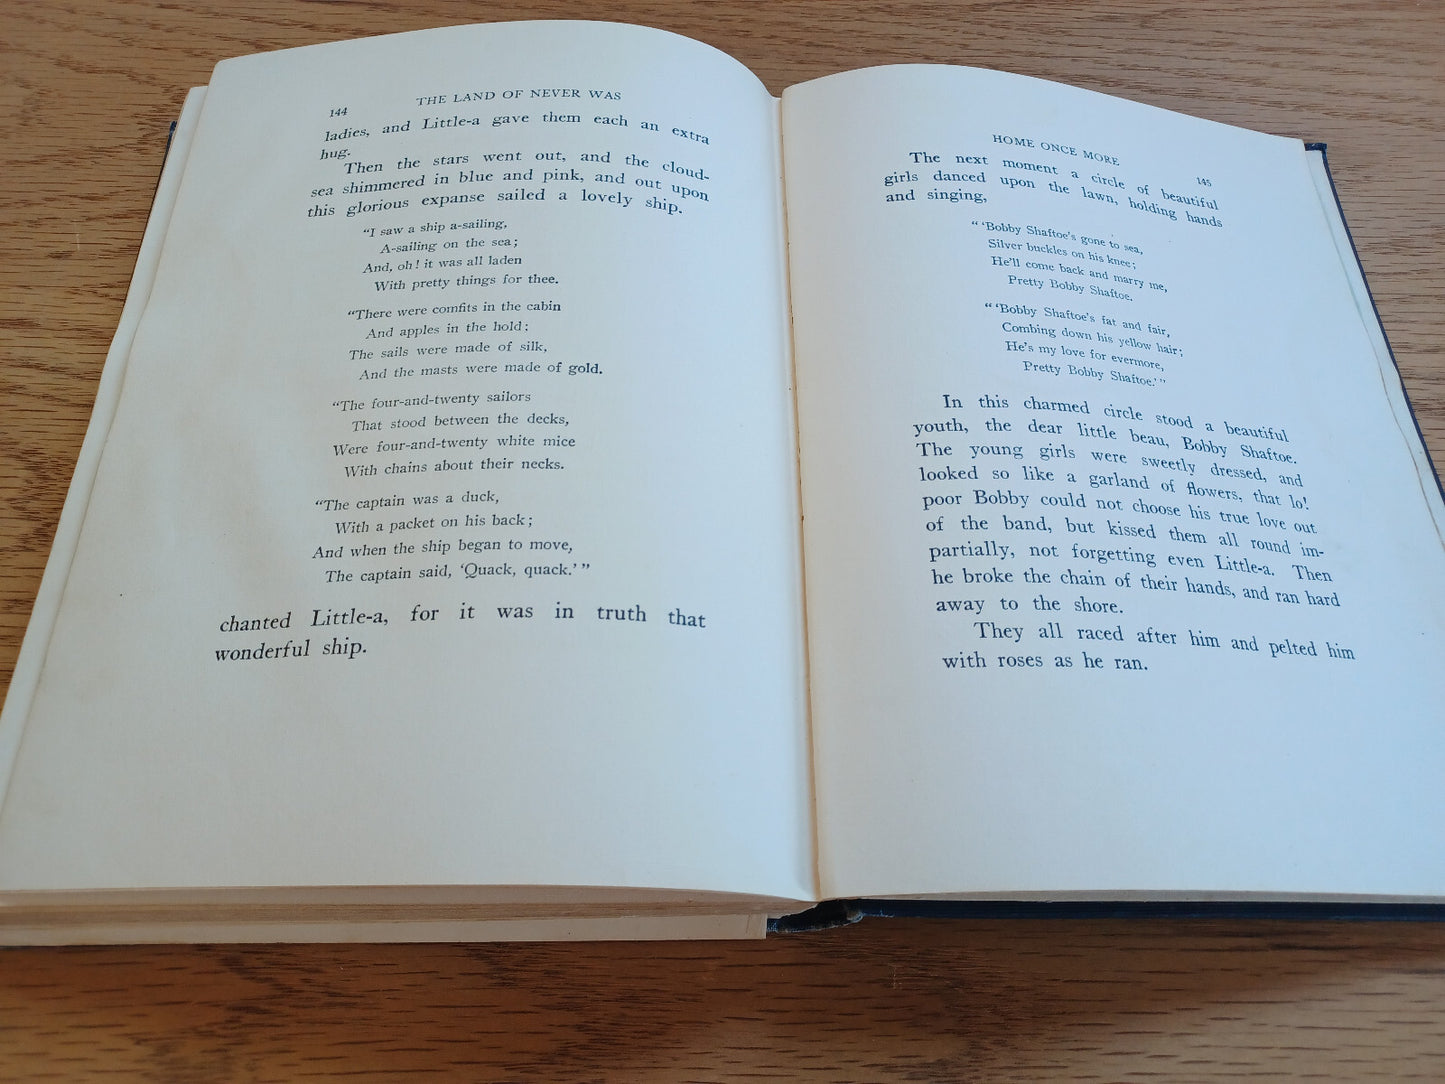 144
THE LAND OF NEVER WAS
ladies, and Little-a gave them each an extra
hug.
Then the stars went out, and the cloud-
sea shimmered in blue and pink, and out upon
this glorious expanse sailed a lovely ship.
“I saw a ship a-sailing,
A-sailing on the sea;
And, oh! it was all laden
With pretty things for thee.
“There were comfits in the cabin
And apples in the hold;
The sails were made of silk,
And the masts were made of gold.
“The four-and-twenty sailors
That stood between the decks,
Were four-and-twenty white mice
With chains about their necks.
“The captain was a duck,
With a packet on his back;
And when the ship began to move,
The captain said, ‘Quack, quack.’ ”
chanted Little-a, for it was in truth that
wonderful ship.
HOME ONCE MORE
145
The next moment a circle of beautiful
girls danced upon the lawn, holding hands
and singing,
“ ‘Bobby Shaftoe’s gone to sea,
Silver buckles on his knee;
He’ll come back and marry me,
Pretty Bobby Shaftoe.
“ ‘Bobby Shaftoe’s fat and fair,
Combing down his yellow hair;
He’s my love for evermore,
Pretty Bobby Shaftoe.’ ”
In this charmed circle stood a beautiful
youth, the dear little beau, Bobby Shaftoe.
The young girls were sweetly dressed, and
looked so like a garland of flowers, that lo!
poor Bobby could not choose his true love out
of the band, but kissed them all round im-
partially, not forgetting even Little-a. Then
he broke the chain of their hands, and ran hard
away to the shore.
They all raced after him and pelted him
with roses as he ran.